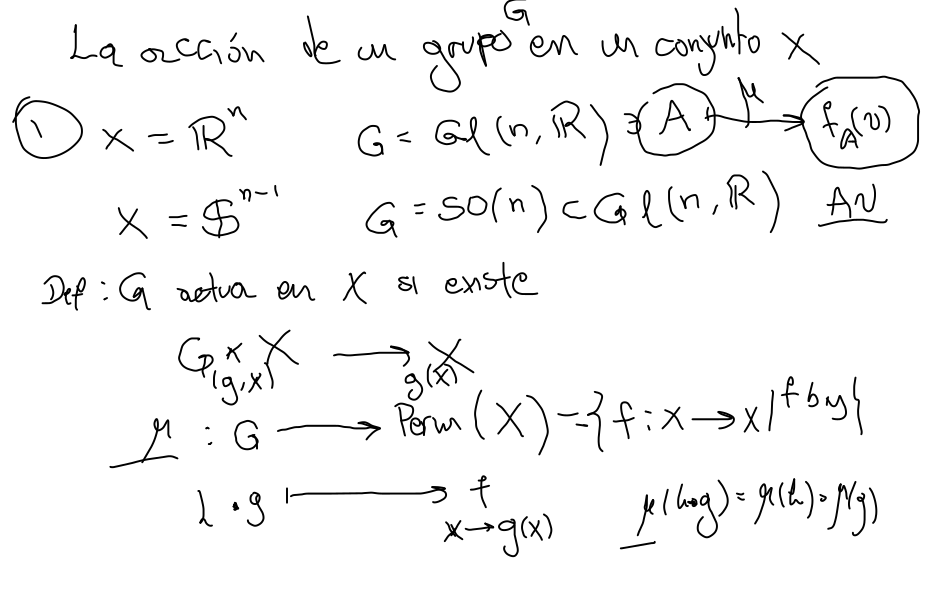 La acción de un grupo G en un conjunto X
① X = ℝⁿ G = Gl(n, ℝ) ∋ A ↦ μ f_A(v)
X = 𝕊ⁿ⁻¹ G = SO(n) ⊂ Gl(n, ℝ) Av
Def : G actua en X si existe
G × X → X
(g, x) g(x)
μ : G → Perm(X) = {f : X → X | f biy}
h · g ↦ f
x → g(x) μ(h∘g) = μ(h) ∘ μ(g)